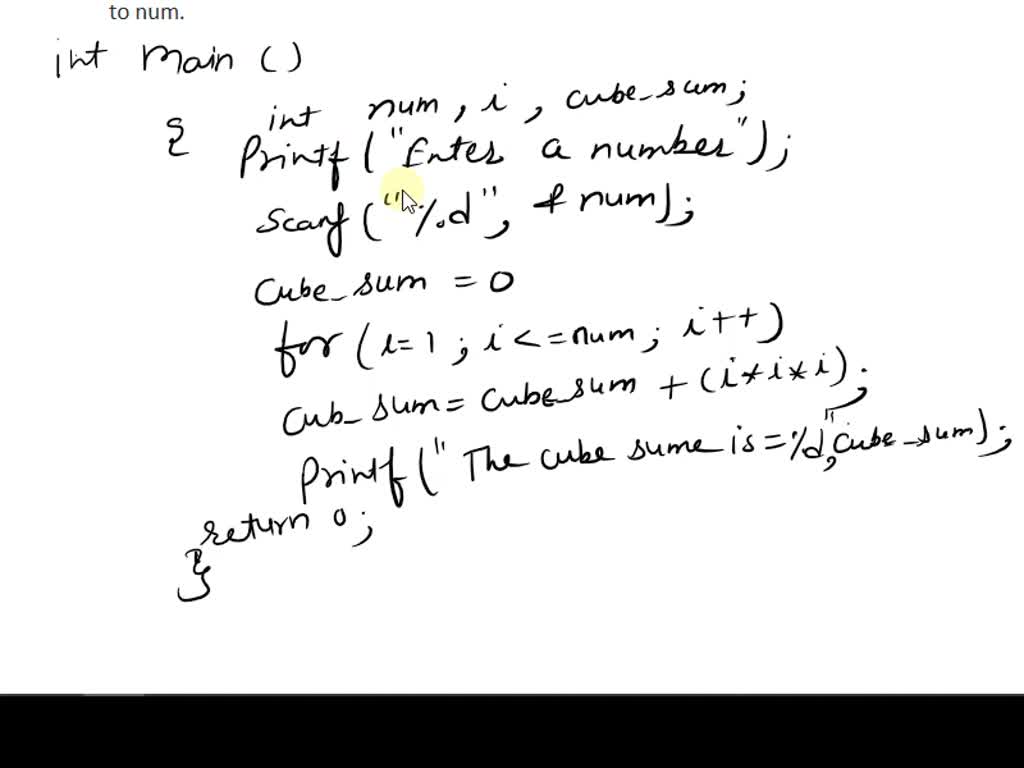 to num.
int main ()
{ int num, i, cube_sum;
Printf ("Enter a number");
Scanf ("%d", &num);
Cube_sum = 0
for (i=1; i<=num; i++)
Cub_sum = cube_sum + (i*i*i);
Printf (" The cube sume is = %d", cube_sum);
return 0;
}